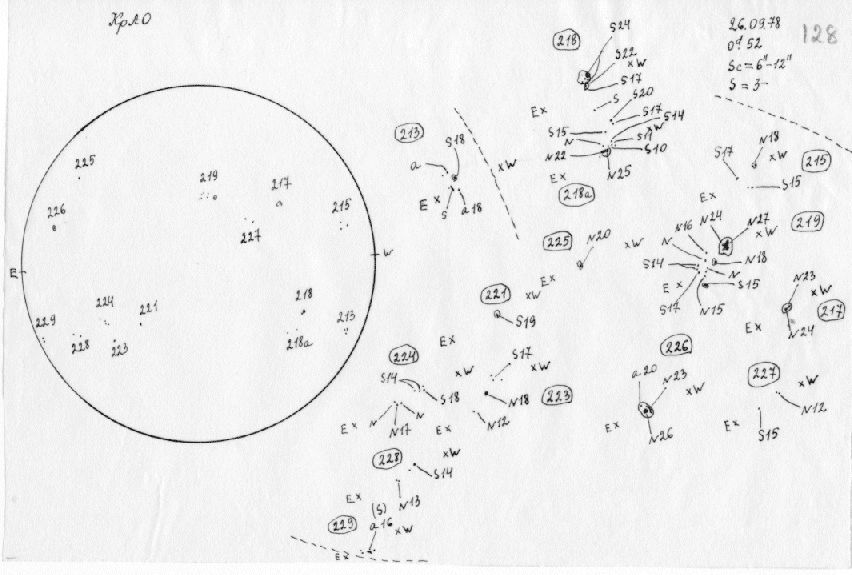 КрАО
26.09.78
128
0ʰ52
Sc=6"-12"
S=3-
225
226
219
217
215
227
E
W
229
224
221
228
223
218
213
218a
213
S18
a
xW
Ex
S
a18
218
S24
S22
xW
S17
Ex
S
S20
S17
S14
xW
S15
N
S11
S10
N22
N25
Ex
218a
215
N18
xW
S17
S15
Ex
225
N20
xW
Ex
219
N27
xW
N24
N16
N
N18
S14
N
S15
Ex
S17
N15
221
xW
S19
Ex
217
N23
xW
Ex
N24
224
S14
xW
S18
N
N
N17
Ex
223
S17
xW
N18
N12
Ex
226
a20
N23
xW
Ex
N26
227
xW
N12
Ex
S15
228
xW
S14
Ex
N13
229
(S)
a16
xW
Ex